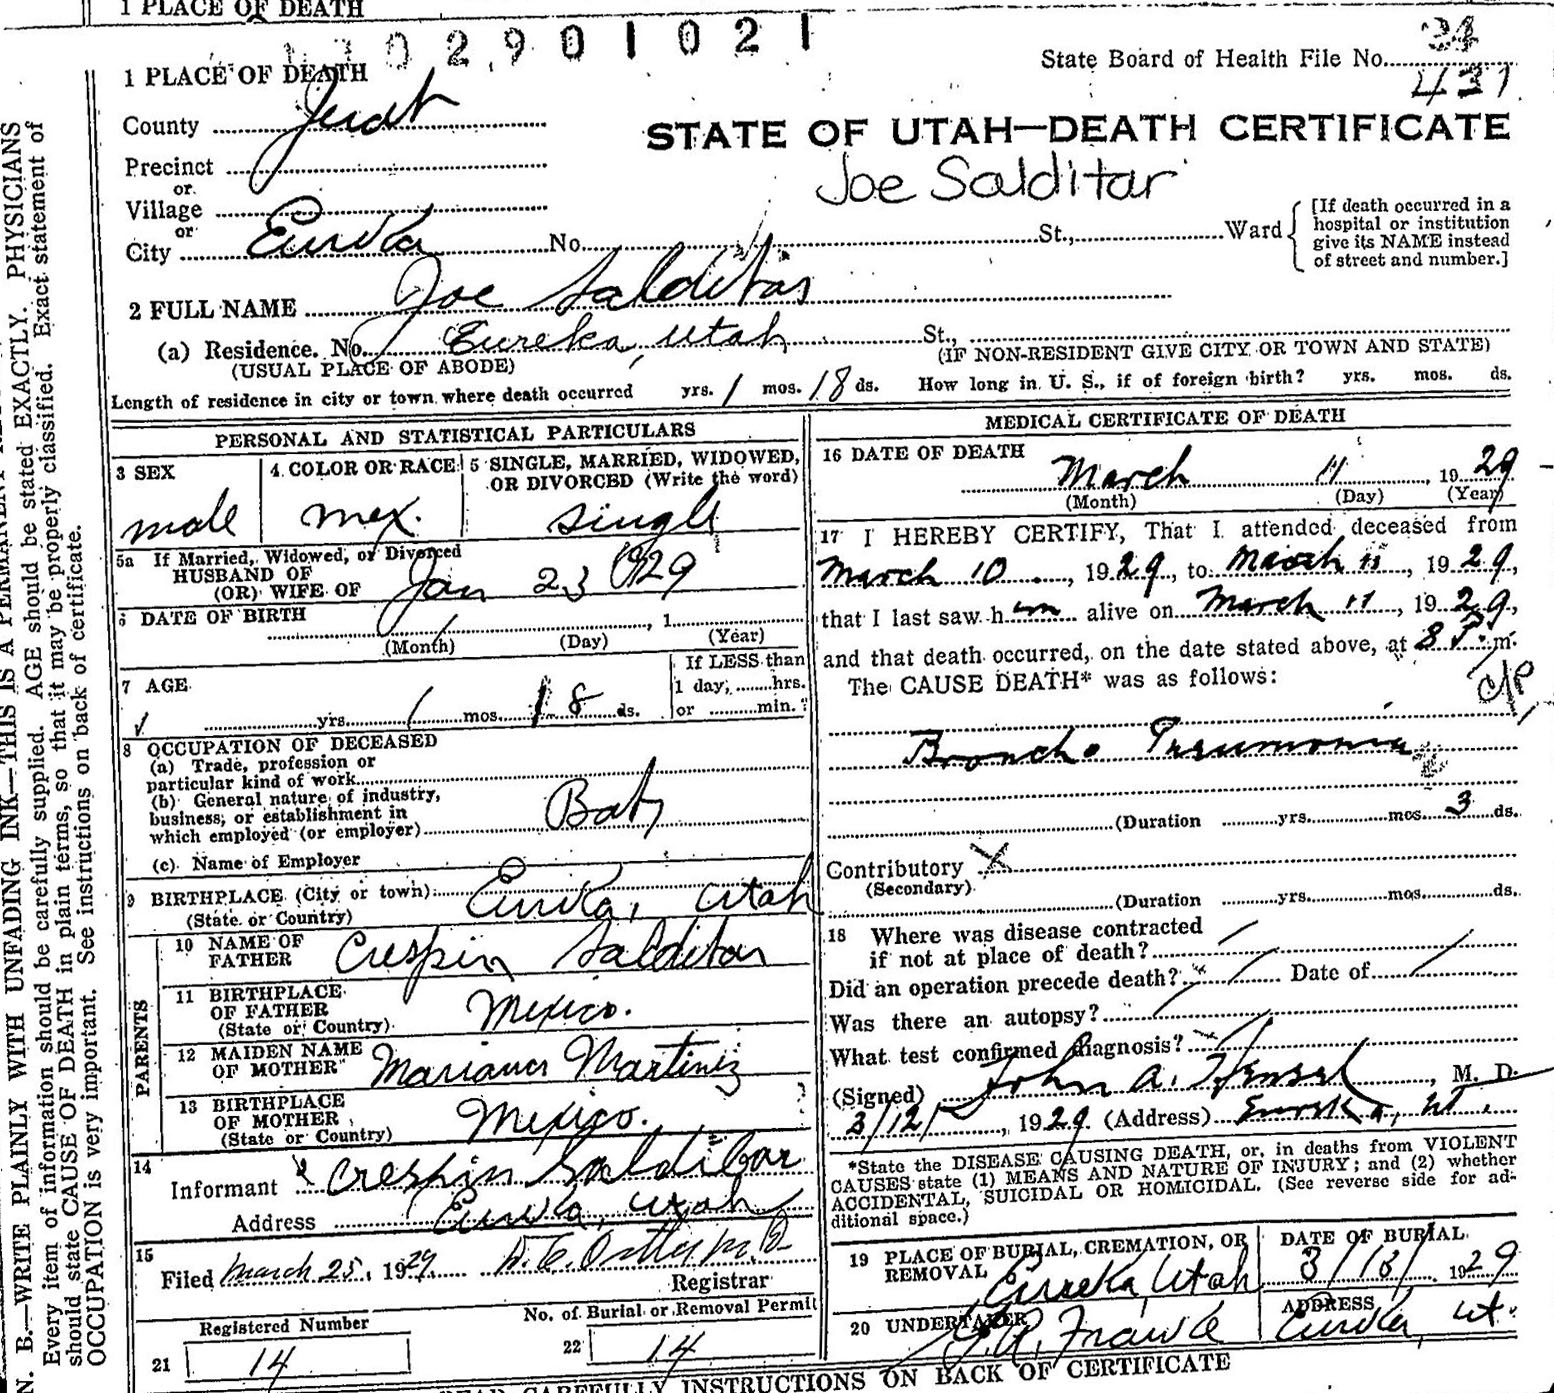 1 PLACE OF DEATH
1302901021
State Board of Health File No. 34
437
1 PLACE OF DEATH
County Juab
Precinct
or
Village
or
City Eureka No. St., Ward
[If death occurred in a
hospital or institution
give its NAME instead
of street and number.]
STATE OF UTAH—DEATH CERTIFICATE
Joe Salditar
2 FULL NAME Joe Salditar
(a) Residence. No. Eureka, Utah St.,
(USUAL PLACE OF ABODE) (IF NON-RESIDENT GIVE CITY OR TOWN AND STATE)
Length of residence in city or town where death occurred yrs. 1 mos. 18 ds. How long in U. S., if of foreign birth? yrs. mos. ds.
PERSONAL AND STATISTICAL PARTICULARS
3 SEX
male
4 COLOR OR RACE
mex.
5 SINGLE, MARRIED, WIDOWED,
OR DIVORCED (Write the word)
single
5a If Married, Widowed, or Divorced
HUSBAND OF
(OR) WIFE OF
Jan 23 1929
6 DATE OF BIRTH , 1
(Month) (Day) (Year)
7 AGE
yrs. 1 mos. 18 ds.
If LESS than
1 day, hrs.
or min.
8 OCCUPATION OF DECEASED
(a) Trade, profession or
particular kind of work
(b) General nature of industry,
business, or establishment in
which employed (or employer)
Baby
(c) Name of Employer
9 BIRTHPLACE (City or town) Eureka, Utah
(State or Country)
PARENTS
10 NAME OF
FATHER Crespin Salditar
11 BIRTHPLACE
OF FATHER
(State or Country) Mexico.
12 MAIDEN NAME
OF MOTHER Mariana Martinez
13 BIRTHPLACE
OF MOTHER
(State or Country) Mexico.
14
Informant Crespin Saldibar
Address Eureka, Utah
15
Filed March 25, 1929
Registrar
Registered Number
21 14
No. of Burial or Removal Permit
22 14
MEDICAL CERTIFICATE OF DEATH
16 DATE OF DEATH
March 11, 1929
(Month) (Day) (Year)
17 I HEREBY CERTIFY, That I attended deceased from
March 10, 1929, to March 11, 1929,
that I last saw him alive on March 11, 1929,
and that death occurred, on the date stated above, at 8 P. m.
The CAUSE DEATH* was as follows:
Broncho Pneumonia
(Duration yrs. mos. 3 ds.
Contributory X
(Secondary)
(Duration yrs. mos. ds.
18 Where was disease contracted
if not at place of death?
Did an operation precede death? Date of
Was there an autopsy?
What test confirmed diagnosis?
(Signed) John A. Hensel, M. D.
3/12/, 1929 (Address) Eureka, Ut.
*State the DISEASE CAUSING DEATH, or, in deaths from VIOLENT
CAUSES state (1) MEANS AND NATURE OF INJURY; and (2) whether
ACCIDENTAL, SUICIDAL OR HOMICIDAL. (See reverse side for ad-
ditional space.)
19 PLACE OF BURIAL, CREMATION, OR
REMOVAL
Eureka, Utah
DATE OF BURIAL
3/13/ 1929
20 UNDERTAKER
ADDRESS
Eureka, Ut.
READ CAREFULLY INSTRUCTIONS ON BACK OF CERTIFICATE
N. B.—WRITE PLAINLY WITH UNFADING INK—THIS IS A PERMANENT
Every item of information should be carefully supplied. AGE should be stated EXACTLY. PHYSICIANS
should state CAUSE OF DEATH in plain terms, so that it may be properly classified. Exact statement of
OCCUPATION is very important. See instructions on back of certificate.